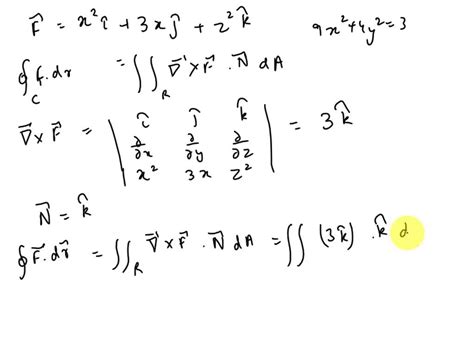 F⃗ = x² î + 3x ĵ + z² k̂    9x²+4y²=3
∮_C F⃗.dr = ∬_R ∇⃗×F⃗ . N⃗ dA
∇⃗×F⃗ = | î ĵ k̂ | = 3k̂
∂/∂x ∂/∂y ∂/∂z
x² 3x z²
N⃗ = k̂
∮ F⃗.dr⃗ = ∬_R ∇⃗×F⃗ . N⃗ dA = ∬ (3k̂) . k̂ d